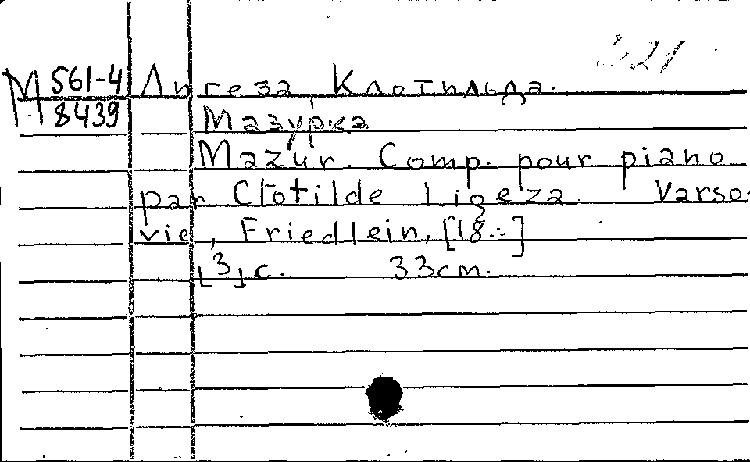 221
М 561-4 Лигеза, Клотильда.
8439 Мазурка
Mazur. Comp. pour piano
par Clotilde Ligęza. Varso-
vie, Friedlein, [18..]
[3] с. 33 см.